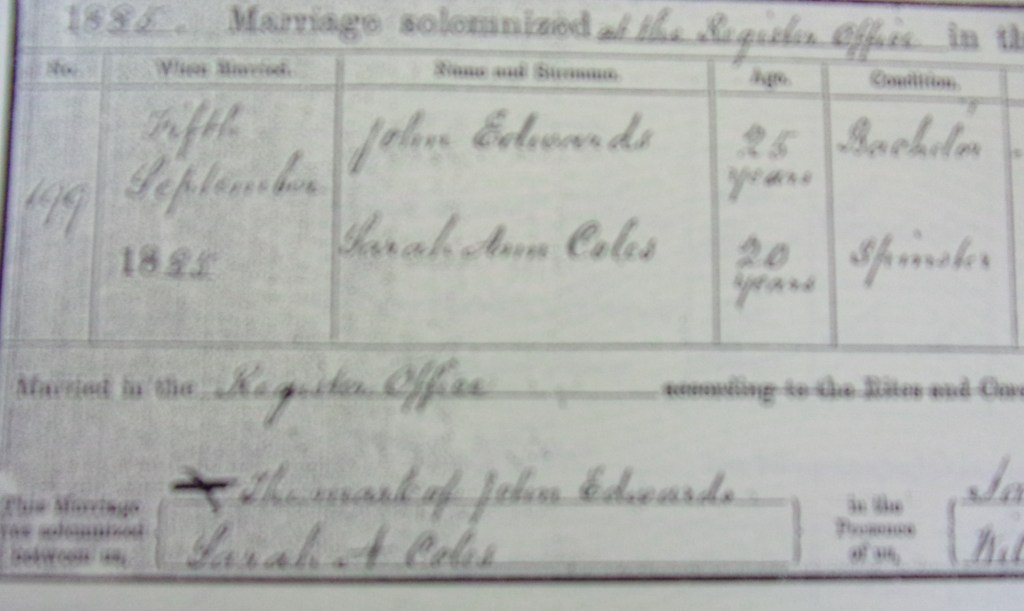 1885. Marriage solemnized at the Register Office in th
No. When Married. Name and Surname. Age. Condition.
Fifth John Edwards 25 Bachelor
September years
199
Sarah Ann Coles 20 Spinster
1885 years
Married in the Register Office according to the Rites and Cere
X The mark of John Edwards
This Marriage was solemnized between us, in the Presence of us,
Sarah A Coles